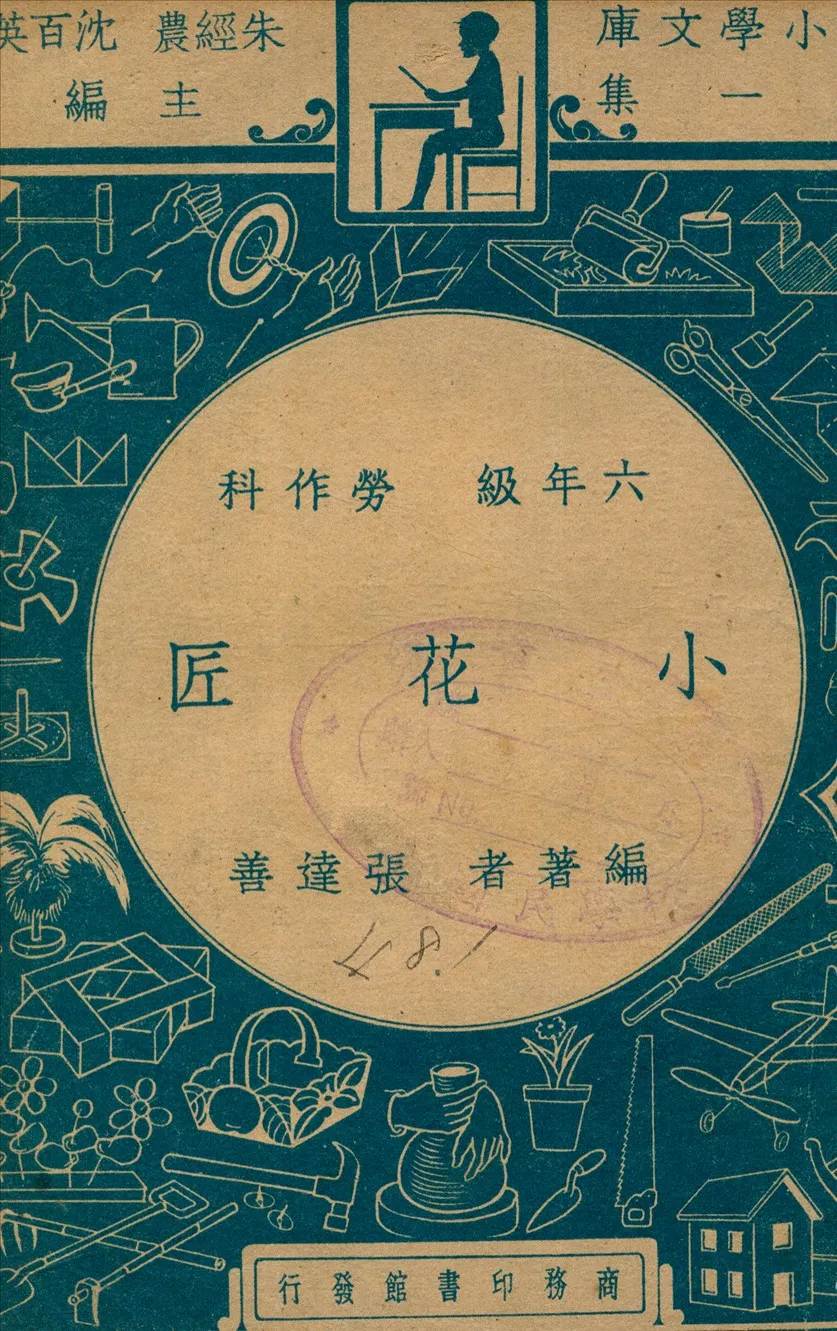 小學文庫
一集
朱經農 沈百英
主編
六年級 勞作科
小花匠
編著者 張達善
No.
商務印書館發行